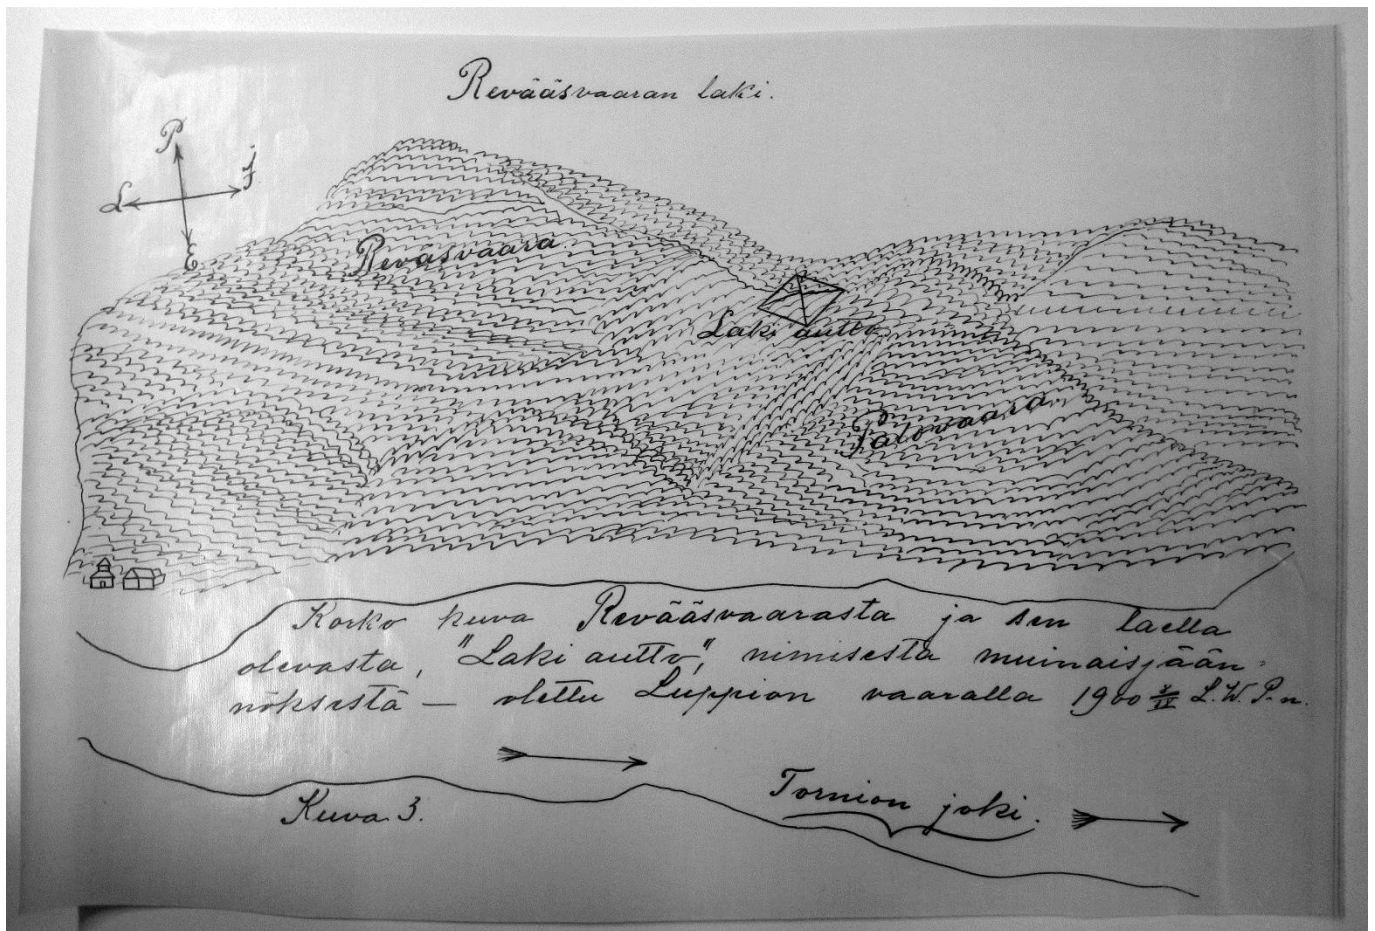 Revääsvaaran laki.
P
L
I
E
Reväsvaara.
Laki autto
Palovaara.
Korko kuva Revääsvaarasta ja sen laella
olevasta, "Laki autto", nimisestä muinaisjään-
nöksestä — otettu Luppion vaaralla 1900 L. W. P-n.
Tornion joki.
Kuva 3.